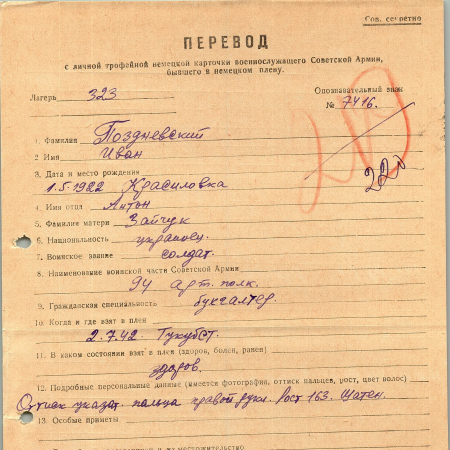 Сов. секретно
ПЕРЕВОД
с личной трофейной немецкой карточки военнослужащего Советской Армии,
бывшего в немецком плену.
Лагерь 323
Опознавательный знак
№ 7416.
1. Фамилия Поздневский
2 Имя Иван
220
3. Дата и место рождения
1.5.1922 Красиловка
4. Имя отца Антон
5. Фамилия матери Зайчук
6. Национальность украинец.
7. Воинское звание солдат.
8. Наименование воинской части Советской Армии
94 арт. полк.
9. Гражданская специальность бухгалтер.
10. Когда и где взят в плен
2.7.42.
11. В каком состоянии взят в плен (здоров, болен, ранен)
здоров.
12. Подробные персональные данные (имеется фотография, оттиск пальцев, рост, цвет волос)
Оттиск указат. пальца правой руки. Рост 163. Шатен.
13. Особые приметы